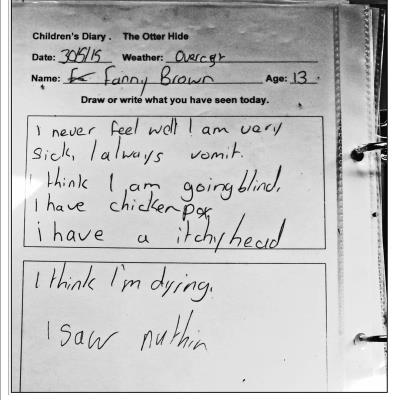 Children's Diary . The Otter Hide
Date: 30/5/15 Weather: Overcast
Name: Fanny Brown Age: 13
Draw or write what you have seen today.
I never feel well I am very
sick, I always vomit.
I think I am going blind,
I have chickenpox
i have a itchy head
I think I'm dying.
I saw nuthin